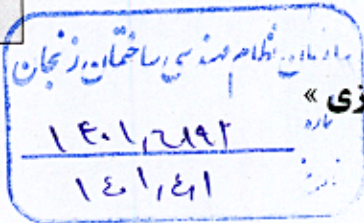 سازمان نظام مهندسی ساختمان زنجان
زی »
۱۴۰۱,۲۸۹۲
۱۴۰۱,۴,۱